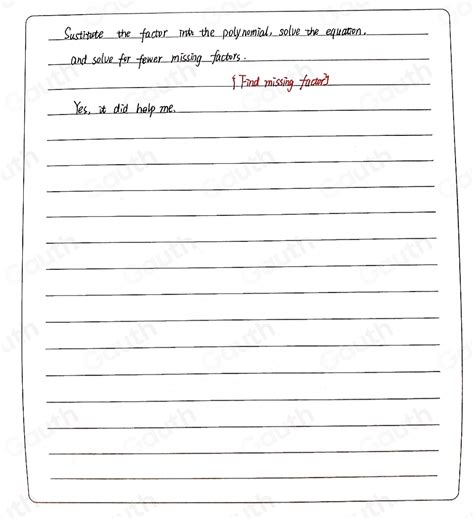 Sustitute the factor into the polynomial, solve the equation,
and solve for fewer missing factors.
{Find missing factor}
Yes, it did help me.
Gauth